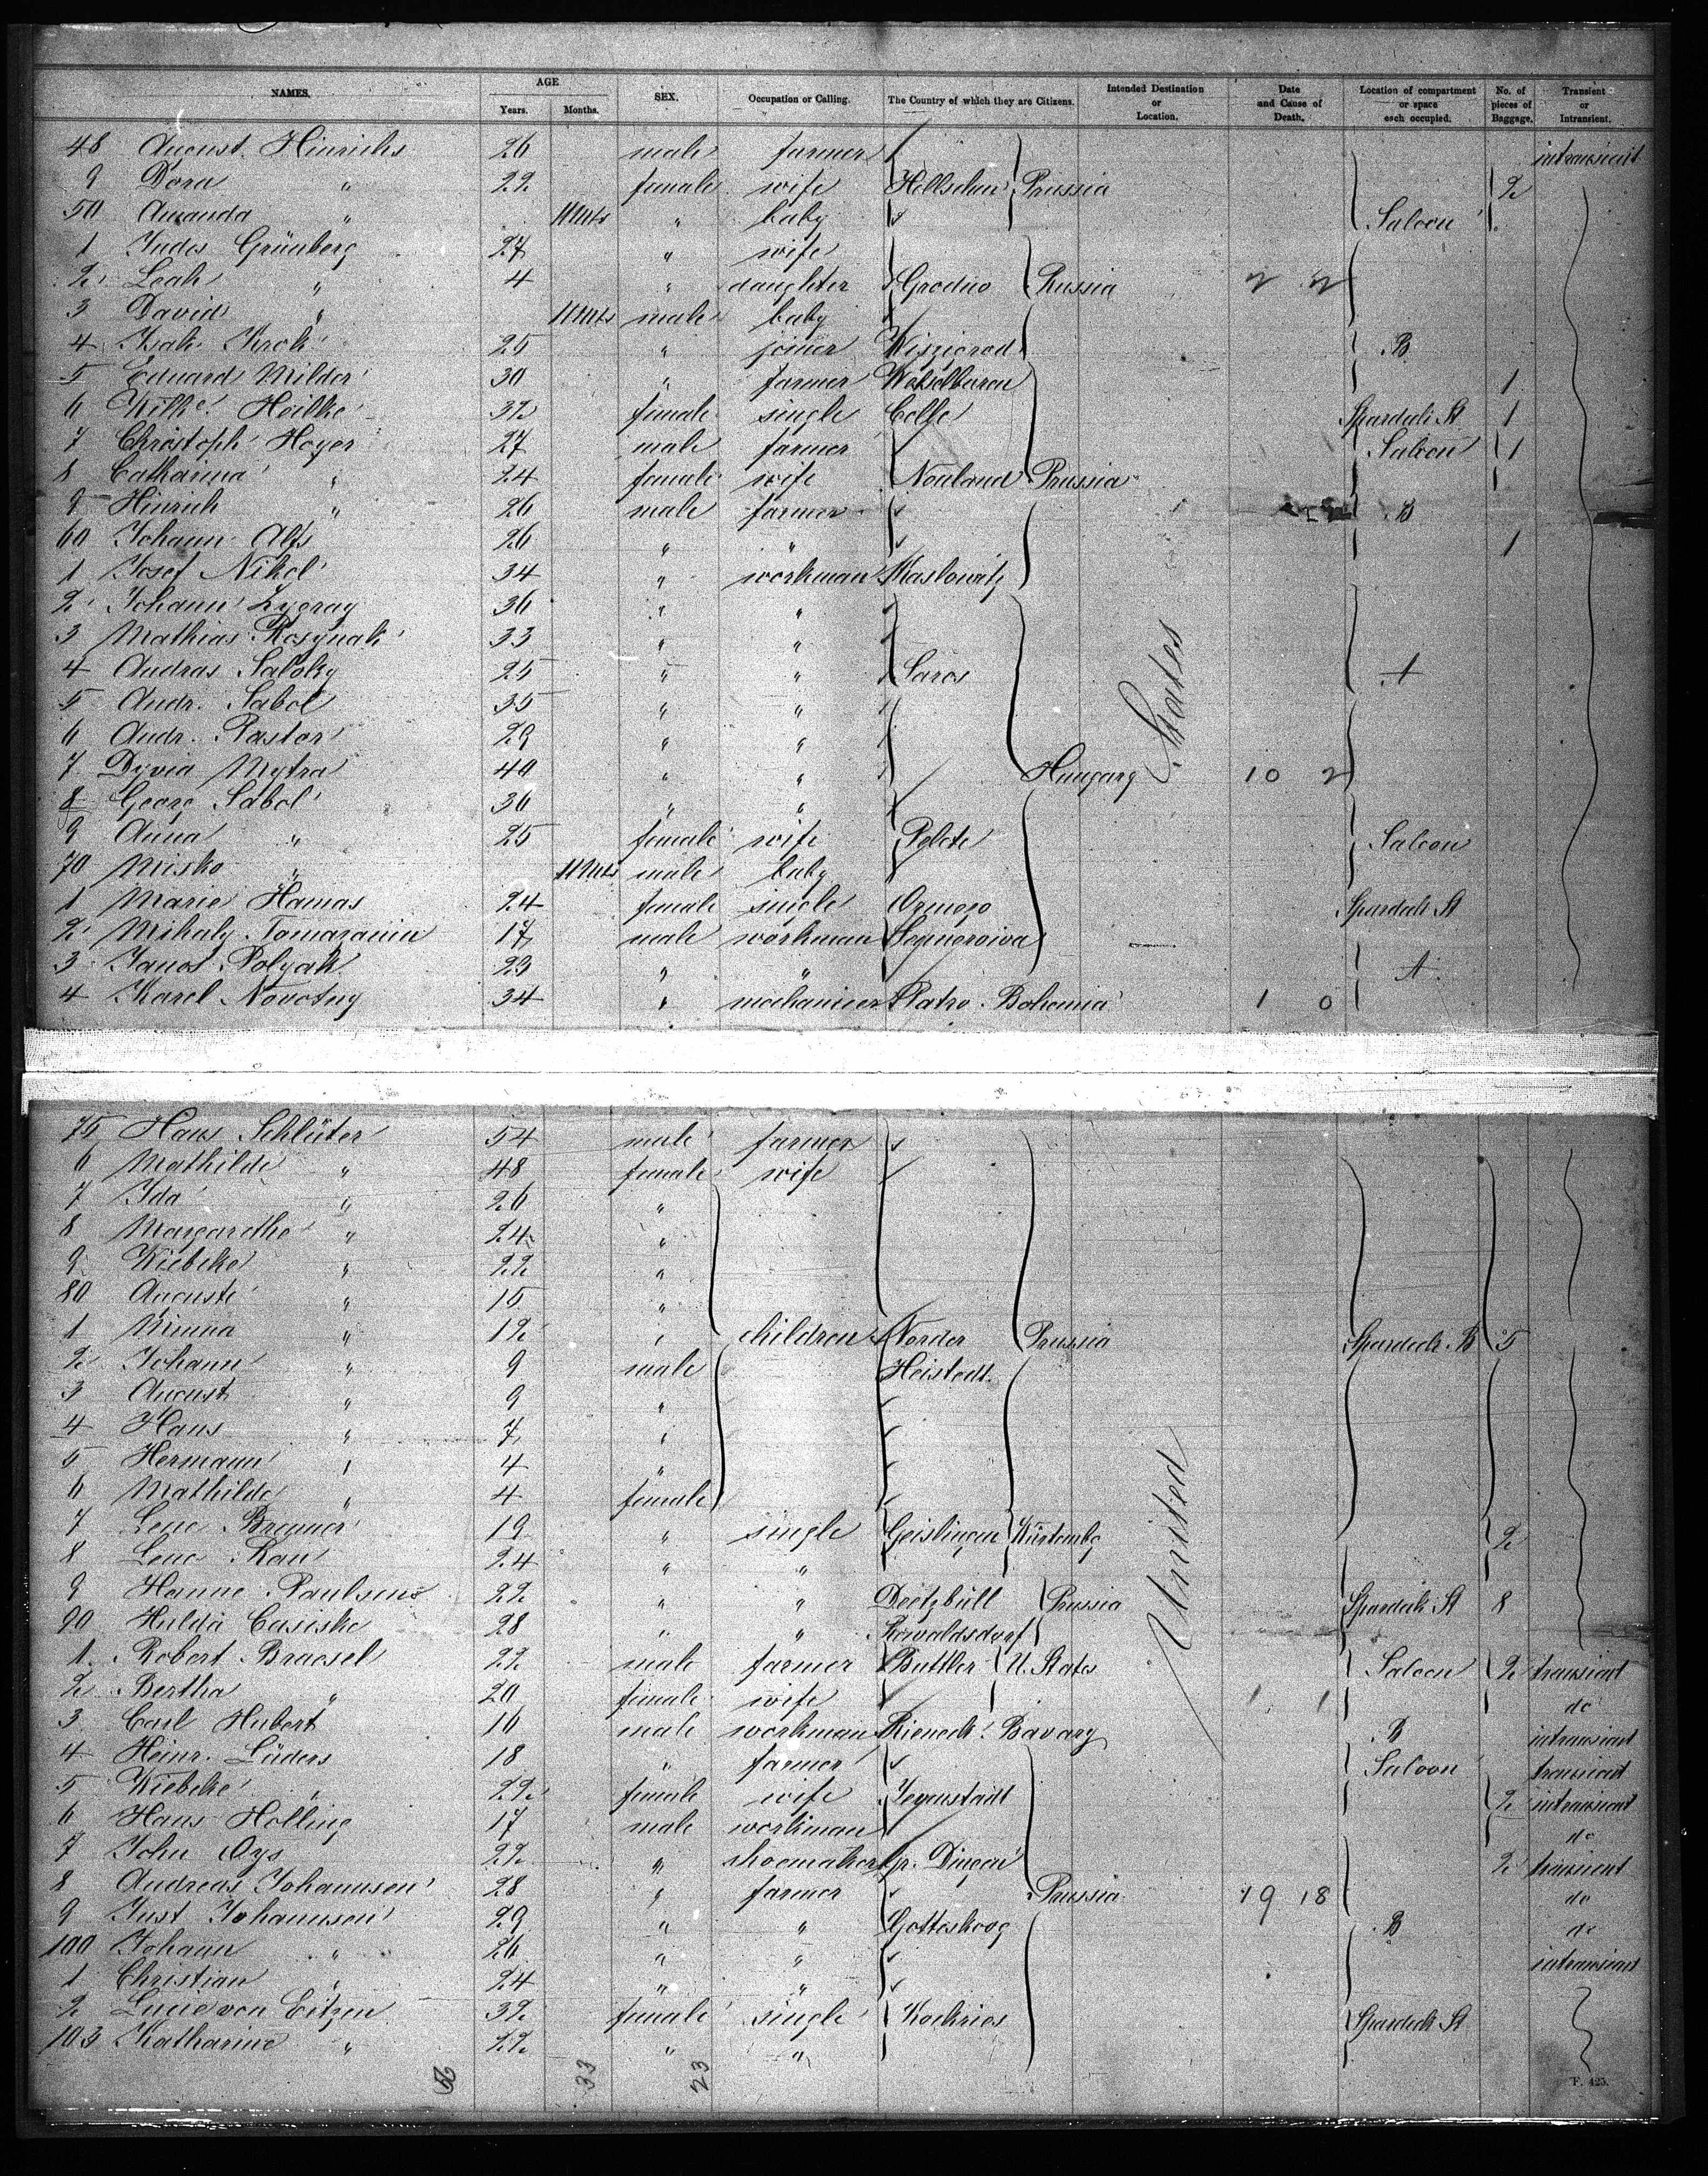 NAMES. AGE Years. Months. SEX. Occupation or Calling. The Country of which they are Citizens. Intended Destination or Location. Date and Cause of Death. Location of compartment or space each occupied. No. of pieces of Baggage. Transient or Intransient.
48 August Hinrichs 26 male farmer intransient
9 Dora " 22 female wife Prussia 2
50 Amanda " 11 Mts " baby Saloon
1 Judes Grünberg 27 " wife
2 Leah " 4 " daughter Grodno Russia
3 David " 11 Mts male baby
4 Isak Krok 25 " joiner B
5 Eduard Milder 30 " farmer Wesselburen 1
6 Heilke 32 female single Celle Spardeck St 1
7 Christoph Hoyer 27 male farmer Saloon 1
8 Catharina " 24 female wife Nouland Prussia
9 Hinrich " 26 male farmer B
60 Johann Alfs 26 " " 1
1 Josef Nikol 34 " workman Maslowitz
2 Johann Zygray 36 " "
3 Mathias Rosynak 33 " "
4 Andras Saloky 25 " " Saros A
5 Andr. Sabol 35 " "
6 Andr. Pastor 29 " "
7 Dyvia Mytra 40 " " Hungary States 10 2
8 Georg Sabol 36 " "
9 Anna " 25 female wife Polote Saloon
70 Misko " 11 Mts male baby
1 Marie Hamas 24 female single Ormozo Spardeck St
2 Mihaly 17 male workman
3 Janos Polyak 23 " " A
4 Karel Novotny 34 " mechanicer Platro Bohemia 1 0
75 Hans Schlüter 54 male farmer
6 Mathilde " 48 female wife
7 Ida " 26 "
8 Margarethe " 24 "
9 Wiebeke " 22 "
80 Auguste " 15 "
1 Minna " 12 " children Norder Prussia Spardeck B 5
2 Johann " 9 male Heistedt
3 August " 9 "
4 Hans " 7 "
5 Hermann " 4 "
6 Mathilde " 4 female
7 Lene Brenner 19 " single Geislingen Würtembg 2
8 Lene Rau 24 " "
9 Hanne Paulsens 22 " " Deetzbüll Prussia United Spardeck St 8
90 Hulda Casiske 28 " "
1 Robert Braesel 22 male farmer Buttler U. States Saloon 2 transient
2 Bertha " 20 female wife 1 1 do
3 Carl Hubert 16 male workman Rieneck Bavary B intransient
4 Heinr. Lüders 18 " farmer Saloon transient
5 Wiebeke " 22 female wife Jevenstädt 2 intransient
6 Hans Holling 17 male workman do
7 John Oys 22 " shoemaker Gr. Dingen 2 transient
8 Andreas Johannsen 28 " farmer Prussia 19 18 do
9 Just Johannsen 29 " " Gotteskoog B do
100 Johann " 26 " " intransient
1 Christian " 24 " "
2 Lucie von Eitzen 32 female single Kockrios Spardeck St
103 Katharine " 22 " "
33 23
F. 425.